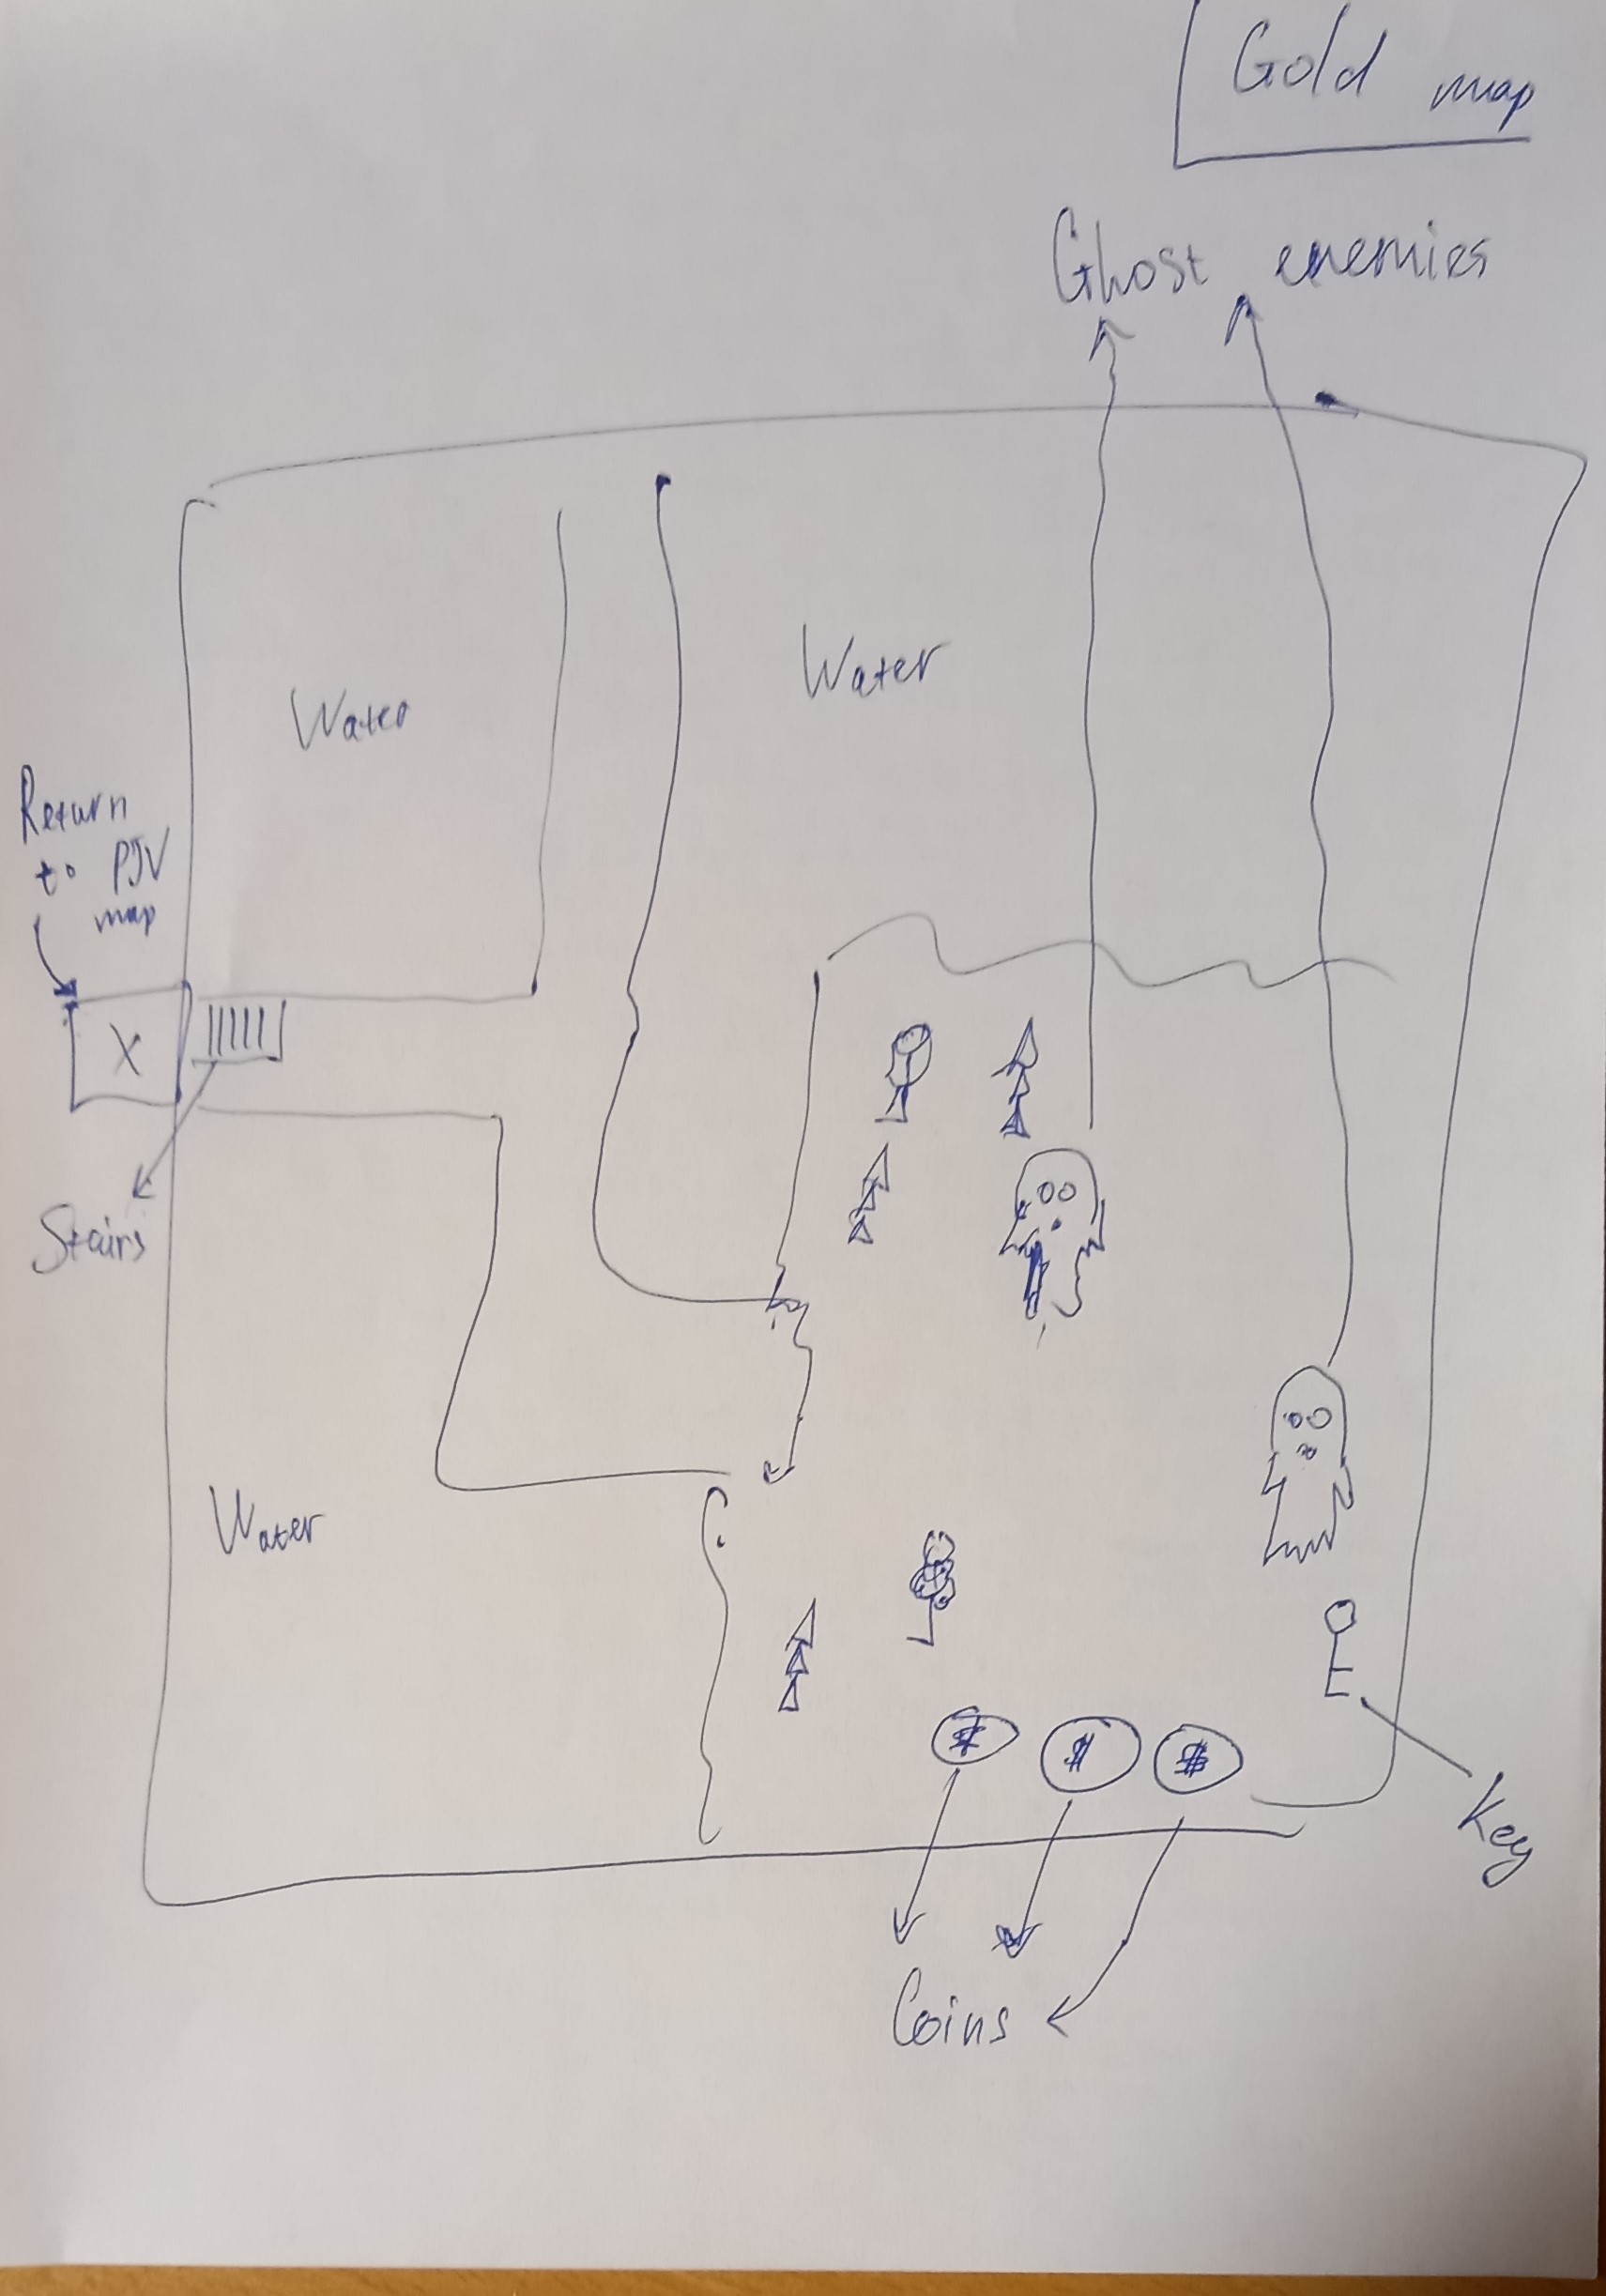 Gold map
Ghost enemies
Water
Water
Return
to PJV
map
X
Stairs
Water
$
$
Key
Coins